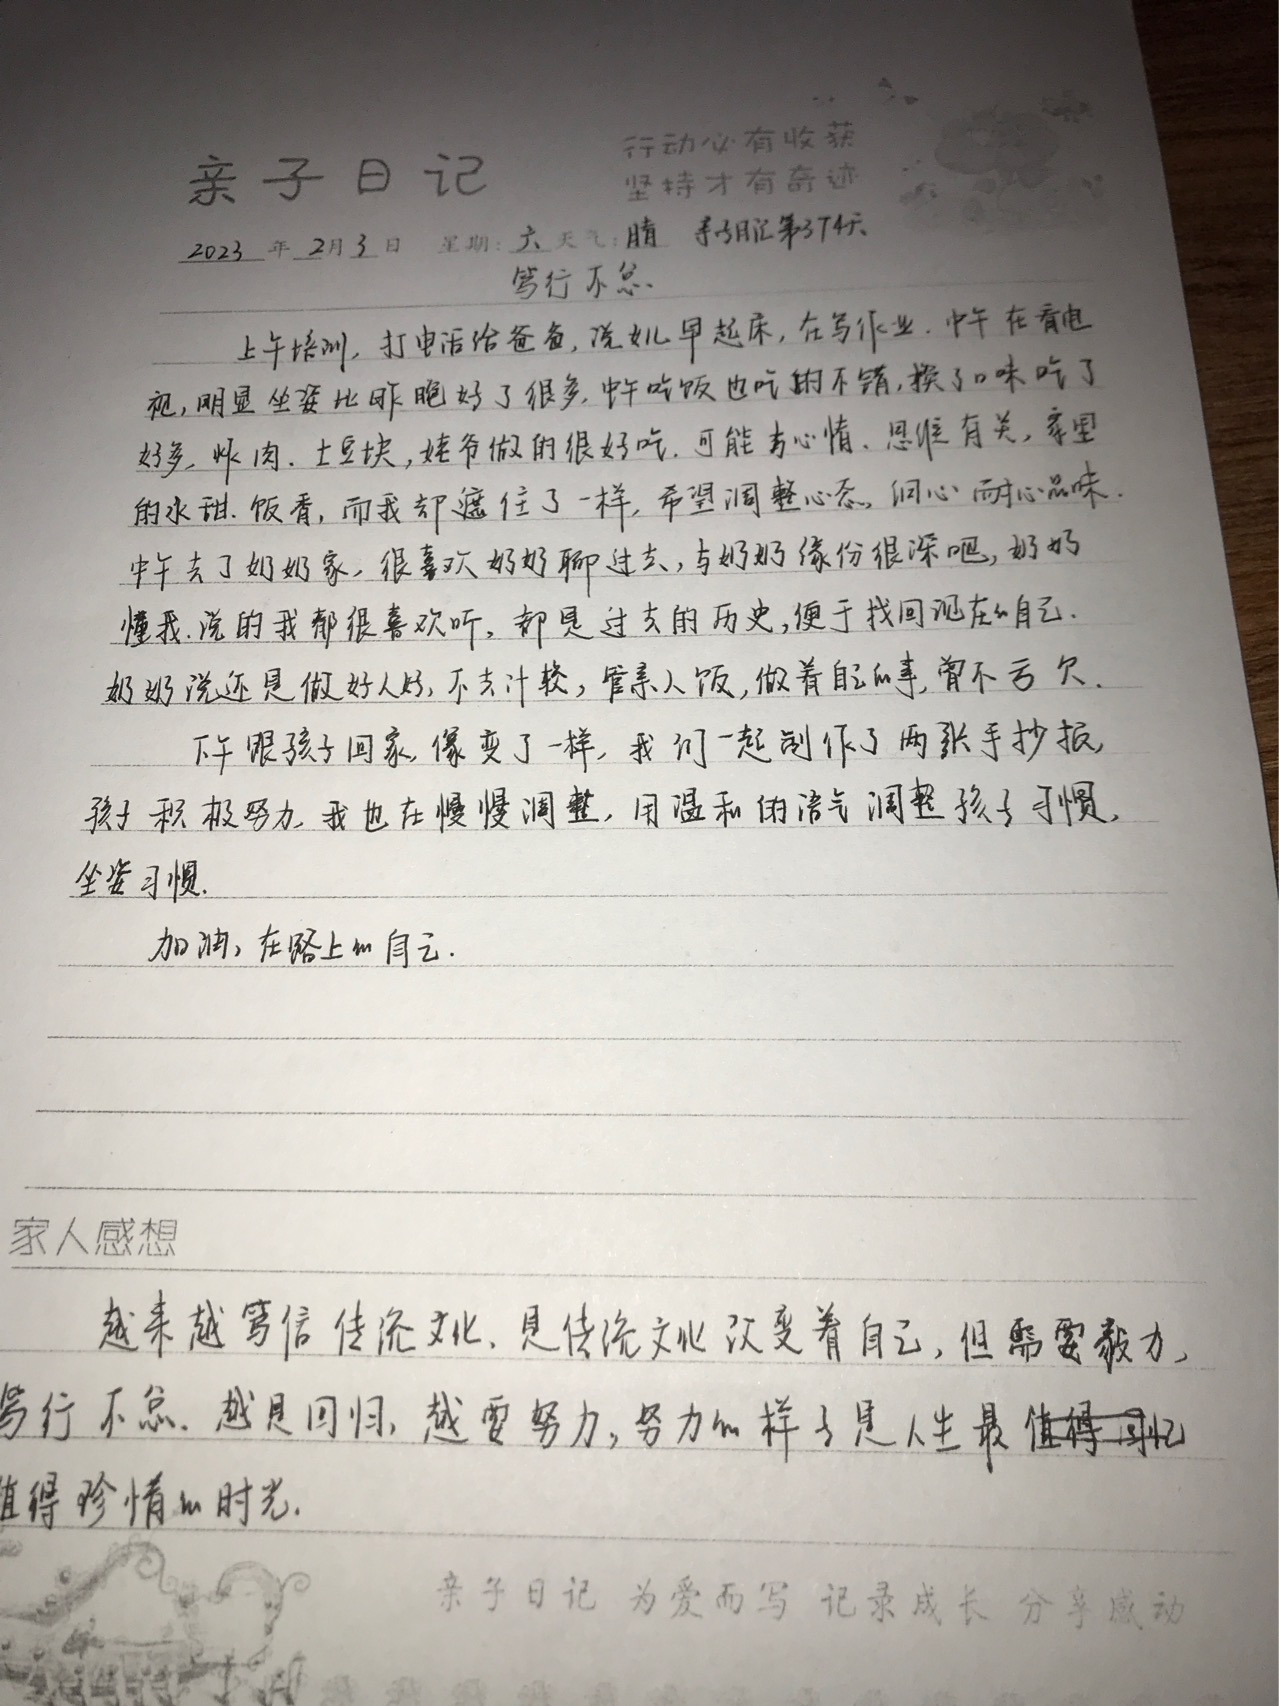 亲子日记
行动必有收获
坚持才有奇迹
2023年2月3日 星期:六 天气:晴 亲子日记第374天
笃行不怠.
上午培训,打电话给爸爸,说女儿早起床,在写作业.中午在看电
视,明显坐姿比昨晚好了很多.中午吃饭也吃的不错,换了口味吃了
好多,炸肉、土豆块,姥爷做的很好吃.可能与心情、思维有关,家里
的水甜、饭香,而我却遮住了一样,希望调整心态,细心耐心品味.
中午去了奶奶家,很喜欢奶奶聊过去,与奶奶缘份很深吧,奶奶
懂我.说的我都很喜欢听,都是过去的历史,便于找回现在的自己.
奶奶说还是做好人好,不去计较,管亲人饭,做着自己的事,曾不亏欠.
下午跟孩子回家,像变了一样,我们一起制作了两张手抄报,
孩子积极努力,我也在慢慢调整,用温和的语气调整孩子习惯,
坐姿习惯.
加油,在路上的自己.
家人感想
越来越笃信传统文化、是传统文化改变着自己,但需要毅力,
笃行不怠.越是回归,越要努力,努力的样子是人生最值得回忆
值得珍惜的时光.
亲子日记 为爱而写 记录成长 分享感动